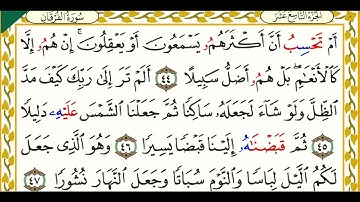 الجُزْءُ التَّاسِعَ عَشَرَ سُورَةُ الفُرْقَانِ
أَمْ تَحْسِبُ أَنَّ أَكْثَرَهُمُۥ يَسْمَعُونَ أَوْ يَعْقِلُونَۚ إِنْ هُمُۥ إِلَّا
كَالْأَنْعَٰمِۖ بَلْ هُمُۥ أَضَلُّ سَبِيلًا ٤٤ أَلَمْ تَرَ إِلَىٰ رَبِّكَ كَيْفَ مَدَّ
ٱلظِّلَّ وَلَوْ شَآءَ لَجَعَلَهُۥ سَاكِنًا ثُمَّ جَعَلْنَا ٱلشَّمْسَ عَلَيْهِۦ دَلِيلًا
٤٥ ثُمَّ قَبَضْنَٰهُۥ إِلَيْنَا قَبْضًا يَسِيرًا ٤٦ وَهُوَ ٱلَّذِي جَعَلَ
لَكُمُ ٱلَّيْلَ لِبَاسًا وَٱلنَّوْمَ سُبَاتًا وَجَعَلَ ٱلنَّهَارَ نُشُورًا ٤٧